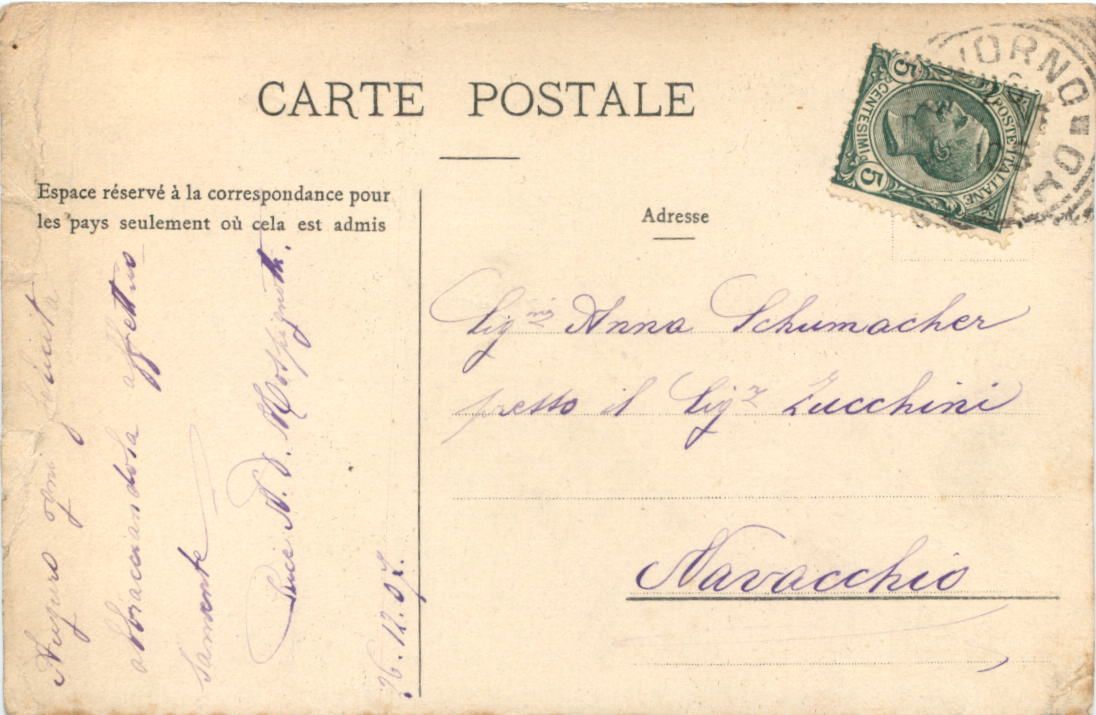 CARTE POSTALE
Espace réservé à la correspondance pour
les pays seulement où cela est admis
Adresse
5 CENTESIMI 5
POSTE ITALIANE
VORNO
Sig.na Anna Schumacher
presso il Sig.r Zucchini
Navacchio
Auguro ogni felicità
abbracciandola affettuo
samente
26.12.07.